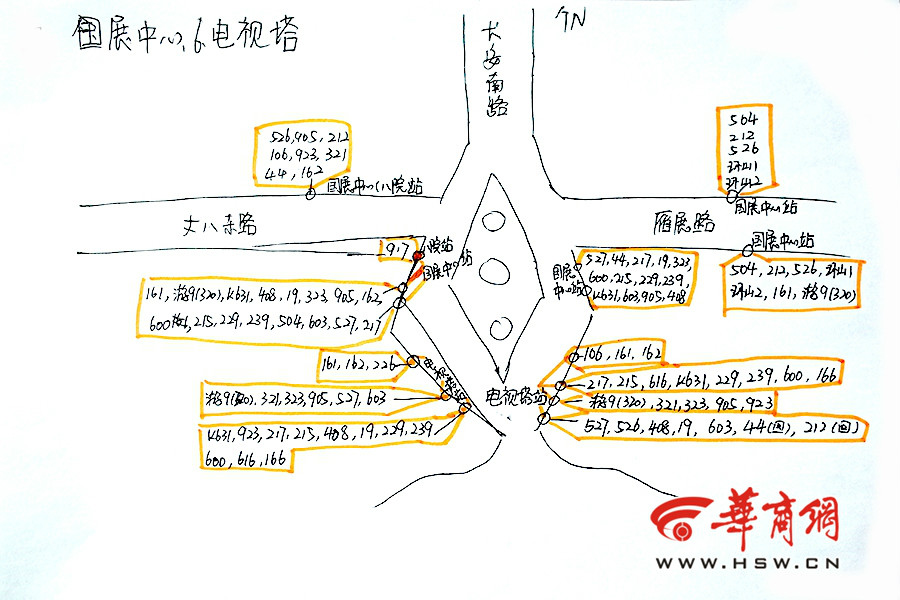 国展中心、6电视塔
个N
长安南路
526,905,212
106,923,321
44,162
国展中心(八院站
504
212
526
环山1
环山2
国展中心站
丈八东路
雁展路
国展中心站
917
八院站
国展中心站
国展
中心站
527,44,217,19,323
600,215,229,239,
K631,603,905,408
504,212,526,环山1
环山2,161,游9(320)
161,游9(320),K631,408,19,323,905,162,
215,229,239,504,603,527,217
161,162,226
电视塔站
106,161,162
217,215,616,K631,229,239,600,166
电视塔站
游9(320),321,323,905,923
游9(320),321,323,905,527,603
527,526,408,19,603,44(回),212(回)
K631,923,217,215,408,19,229,239
600,616,166
華商網
WWW.HSW.CN